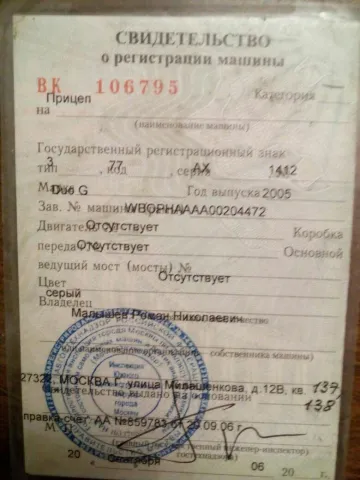 СВИДЕТЕЛЬСТВО
о регистрации машины
ВК 106795
Прицеп Категория
на
(наименование машины)
Государственный регистрационный знак
тип 3, код 77 серия АХ 1412
Duo G Год выпуска 2005
Зав. № машины WBOPHAAAA00204472
Двигатель № Отсутствует Коробка
передач № Отсутствует Основной
ведущий мост (мосты) № Отсутствует
Цвет
серый
Владелец
Малышев Роман Николаевич
или наименование организации
собственника машины)
127322, МОСКВА Г, улица Милашенкова, д.12В, кв. 137,
138
Свидетельство выдано на основании
справка-счет АА №859783 от 29.09.06 г.
М
20 06 20